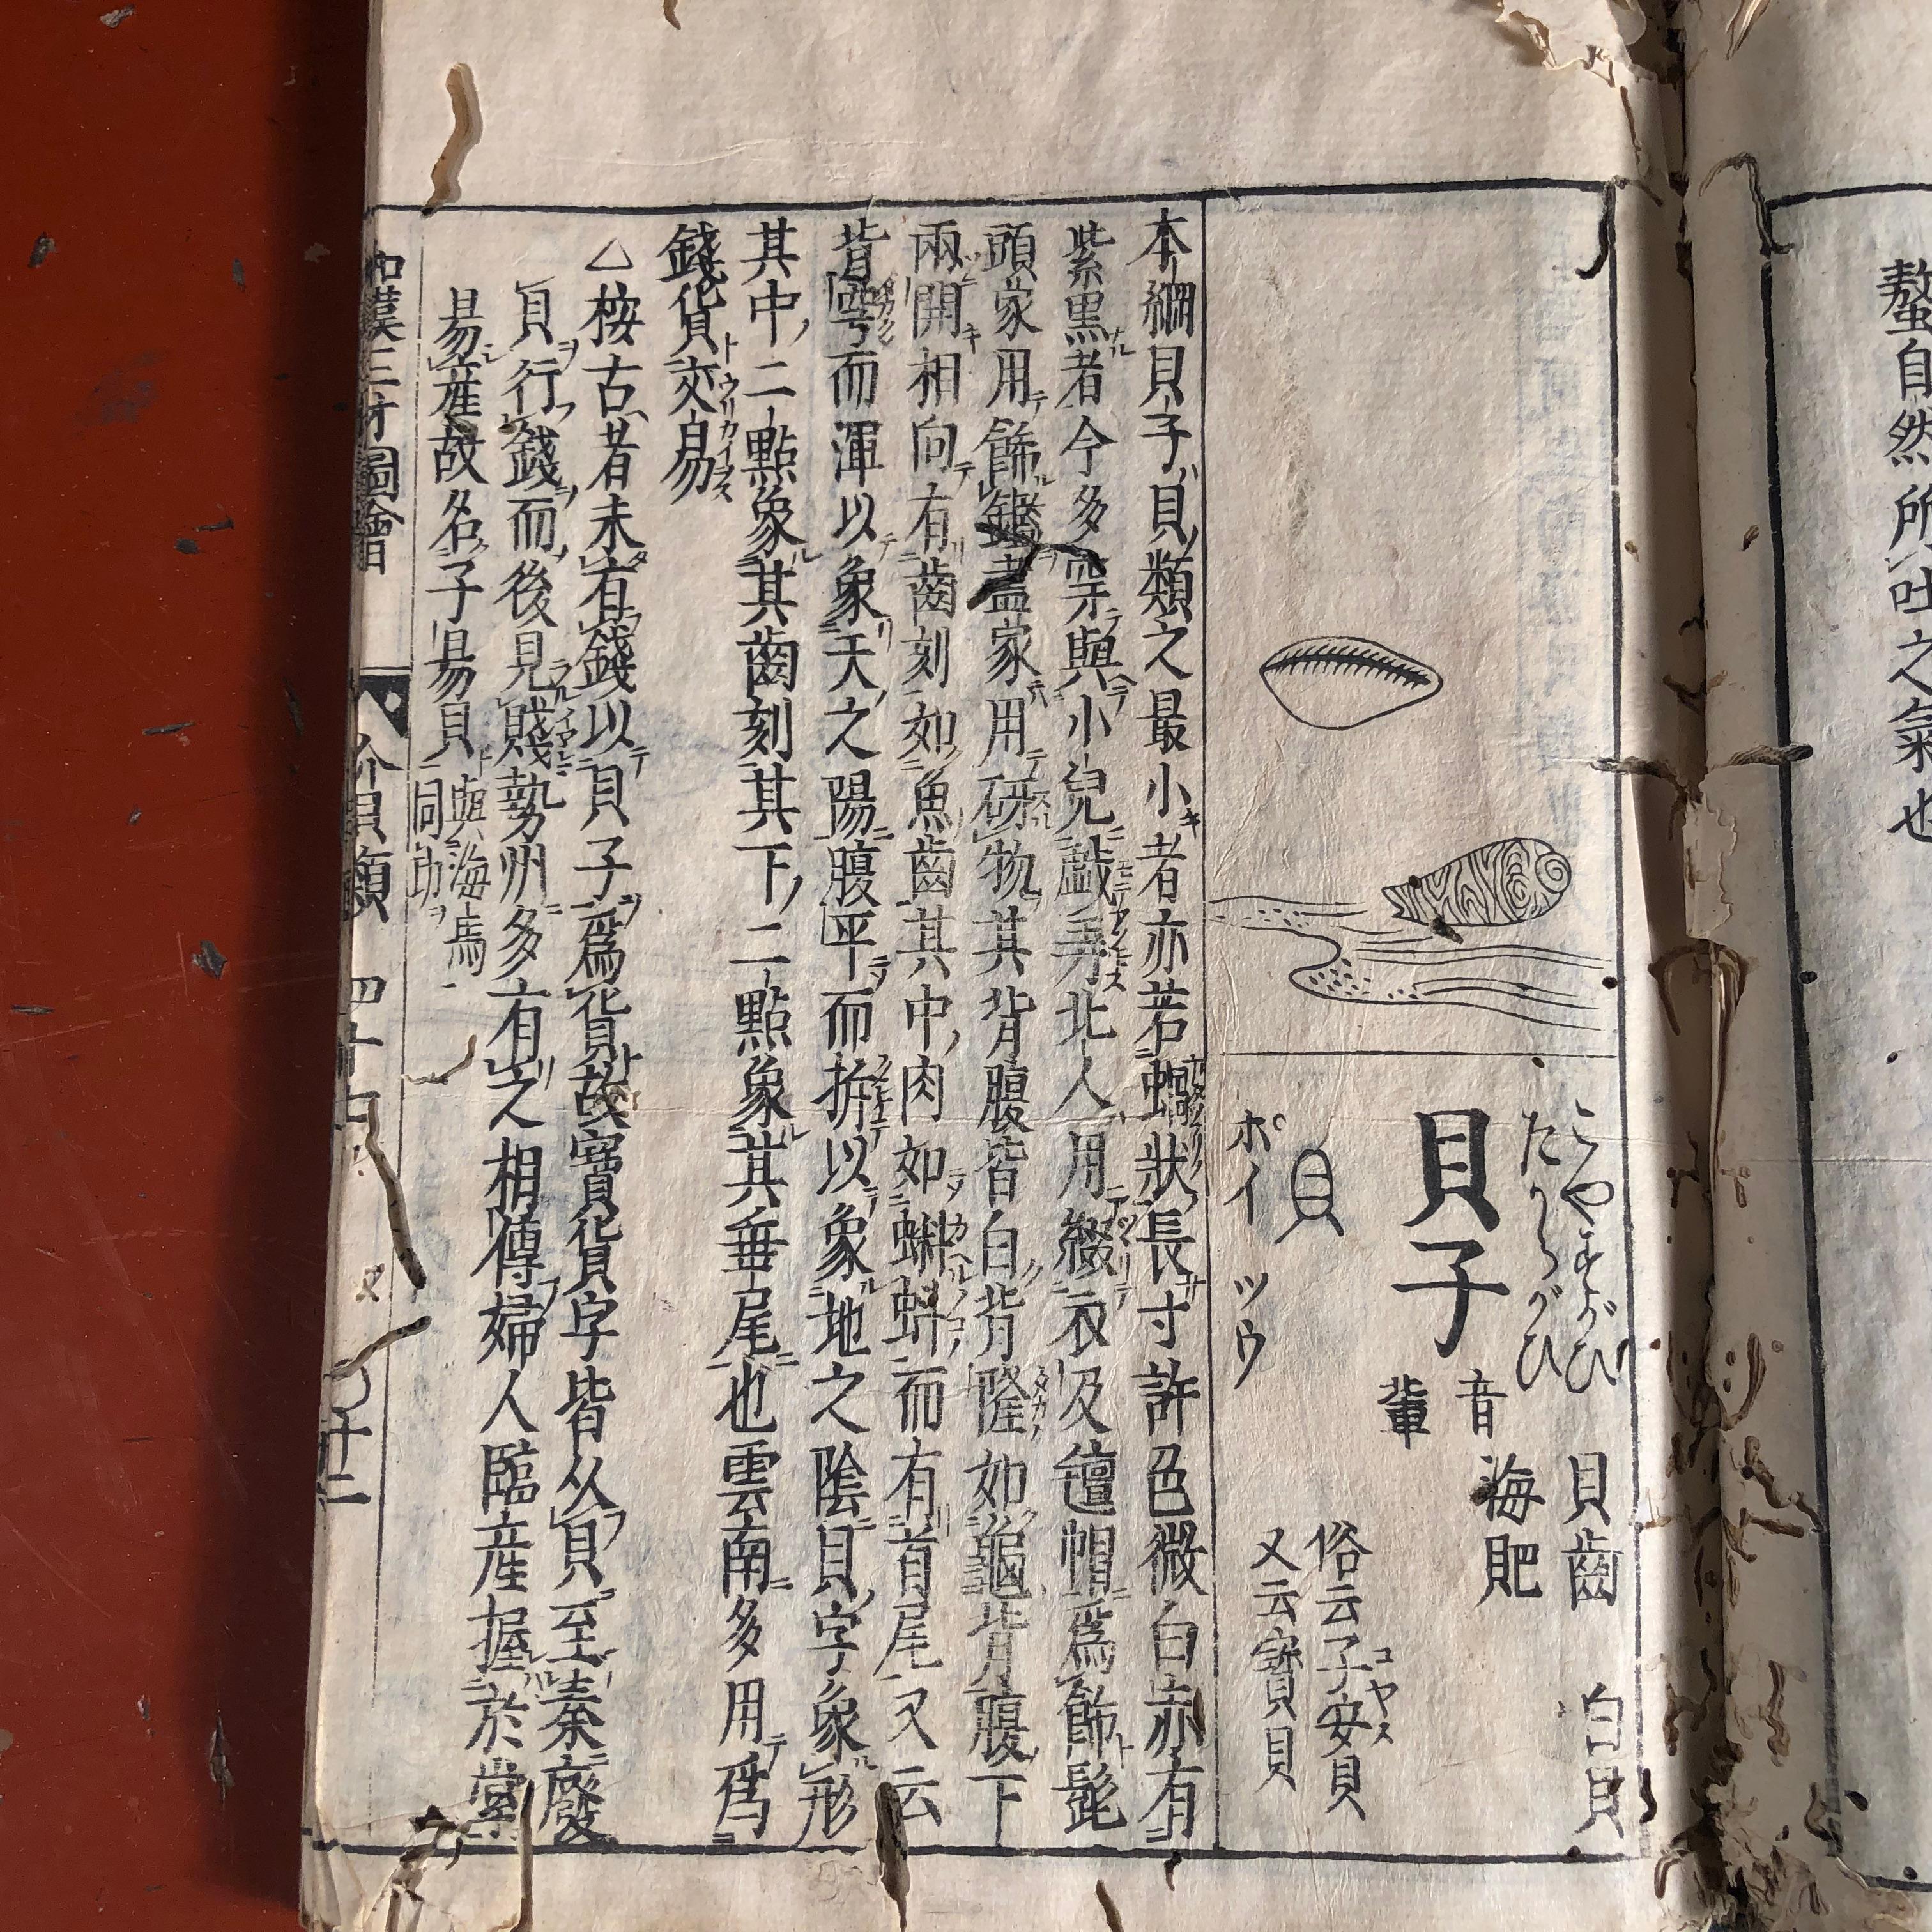 鼇自然所吐之氣也
こやすがひ
たからがひ
貝子
音輩
貝
ポイ ツウ
貝齒 白貝
海𧵅
俗云子安貝
コヤス
又云寶貝
本綱貝子貝類之最小者亦若蝸狀長寸許色微白亦有
紫黒者今多穿與小兒戯弄北人用綴衣及氊帽爲飾髢
頭家用飾鑑畫家用研物其背腹皆白背隆如龜背腹下
兩開相向有齒刻如魚齒其中肉如蝌蚪而有首尾又云
背穹而渾以象天之陽腹平而拆以象地之陰貝字象形
其中二點象其齒刻其下二點象其垂尾也雲南多用爲
錢貨交易
△桉古者未有錢以貝子爲貨故寶貨字皆从貝至秦廢
貝行錢而後見賤勢州多有之相傳婦人臨産握於掌
易産故名子易貝與海馬同功
和漢三才圖會
介貝類 四十七